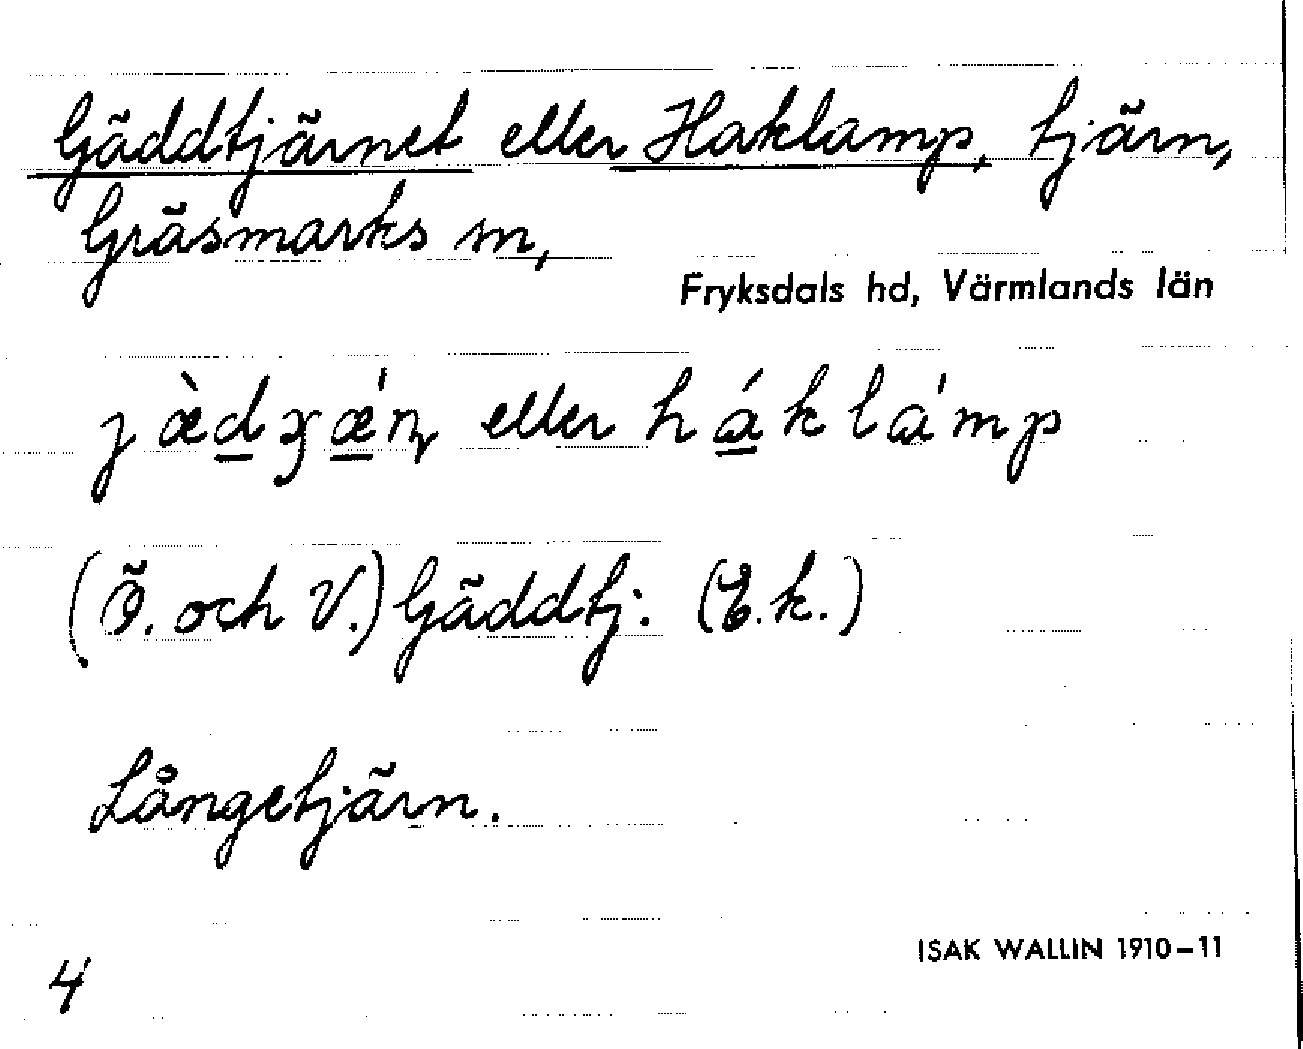 Gäddtjärnet eller Haklamp, tjärn,
Gräsmarks sn,
Fryksdals hd, Värmlands län
eller
(Ö. och V.) Gäddtj. (E.k.)
Långetjärn.
ISAK WALLIN 1910–11
4